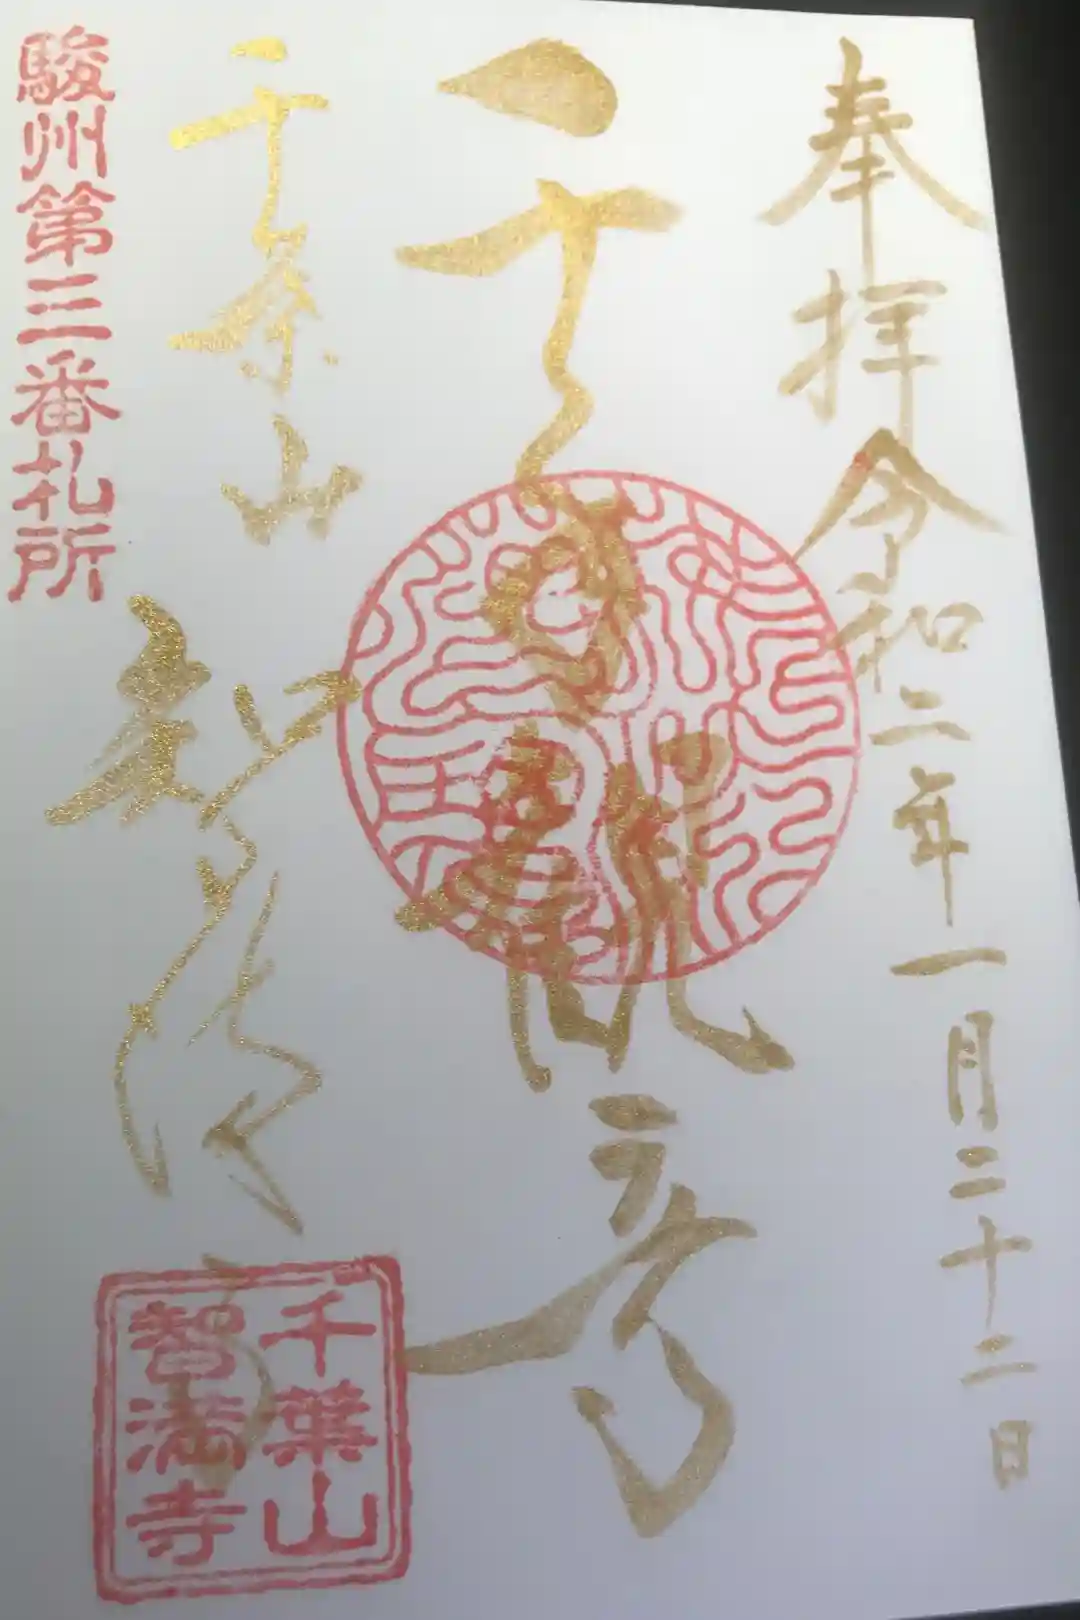 奉拝 令和二年一月二十二日
千手観音
千葉山
智満寺
駿州第三番札所
千葉山
智満寺